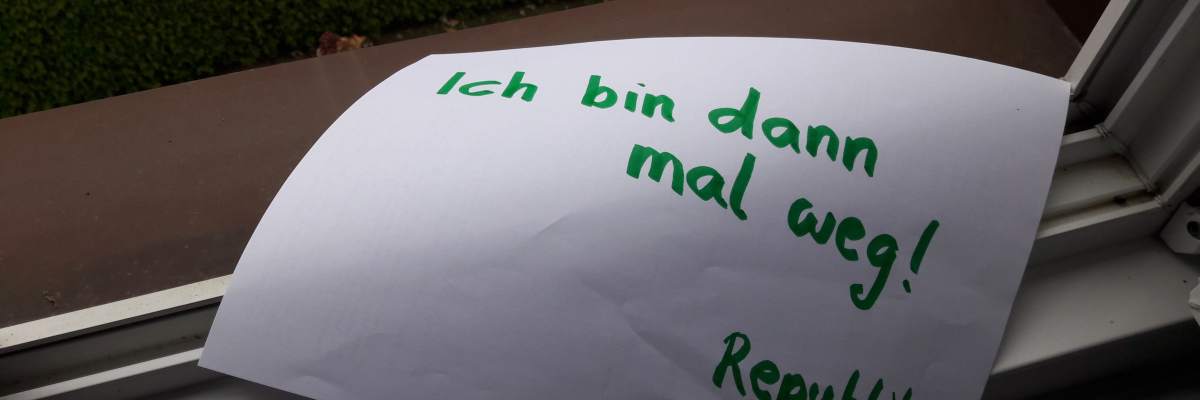 Ich bin dann
mal weg!